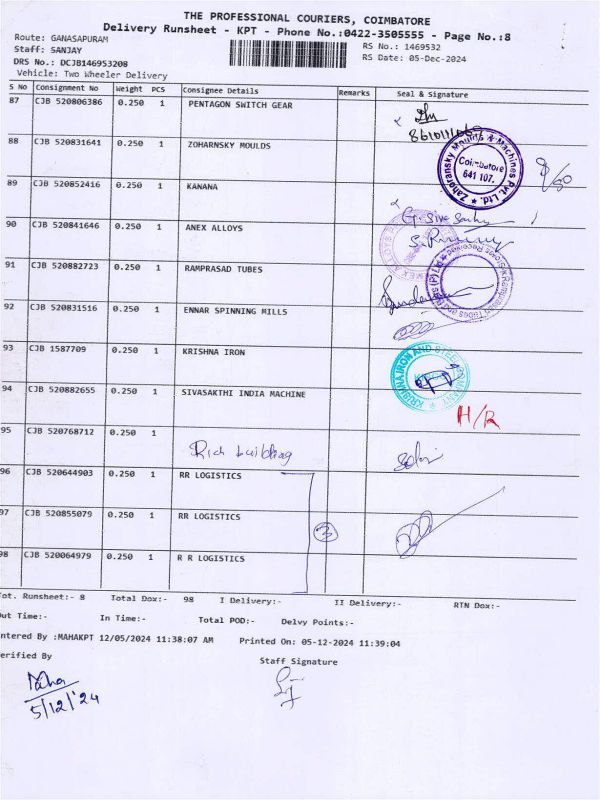 THE PROFESSIONAL COURIERS, COIMBATORE
Delivery Runsheet - KPT - Phone No.:0422-3505555 - Page No.:8
Route: GANASAPURAM
RS No.: 1469532
Staff: SANJAY
RS Date: 05-Dec-2024
DRS No.: DCJB146953208
Vehicle: Two Wheeler Delivery
S No Consignment No Weight PCS Consignee Details Remarks Seal & Signature
87 CJB 520806386 0.250 1 PENTAGON SWITCH GEAR
88 CJB 520831641 0.250 1 ZOHARNSKY MOULDS
Zahoransky Moulds & Machines Pvt. Ltd.
Coimbatore
641 107.
89 CJB 520852416 0.250 1 KANANA
90 CJB 520841646 0.250 1 ANEX ALLOYS
91 CJB 520882723 0.250 1 RAMPRASAD TUBES
92 CJB 520831516 0.250 1 ENNAR SPINNING MILLS
93 CJB 1587709 0.250 1 KRISHNA IRON
KRISHNA IRON AND STEEL COMPANY
94 CJB 520882655 0.250 1 SIVASAKTHI INDIA MACHINE
H/R
95 CJB 520768712 0.250 1
Rich building
96 CJB 520644903 0.250 1 RR LOGISTICS
97 CJB 520855079 0.250 1 RR LOGISTICS
3
98 CJB 520064979 0.250 1 R R LOGISTICS
Tot. Runsheet:- 8 Total Dox:- 98 I Delivery:- II Delivery:- RTN Dox:-
Out Time:- In Time:- Total POD:- Delvy Points:-
Entered By :MAHAKPT 12/05/2024 11:38:07 AM Printed On: 05-12-2024 11:39:04
Verified By
Staff Signature
Maha
5/12/'24